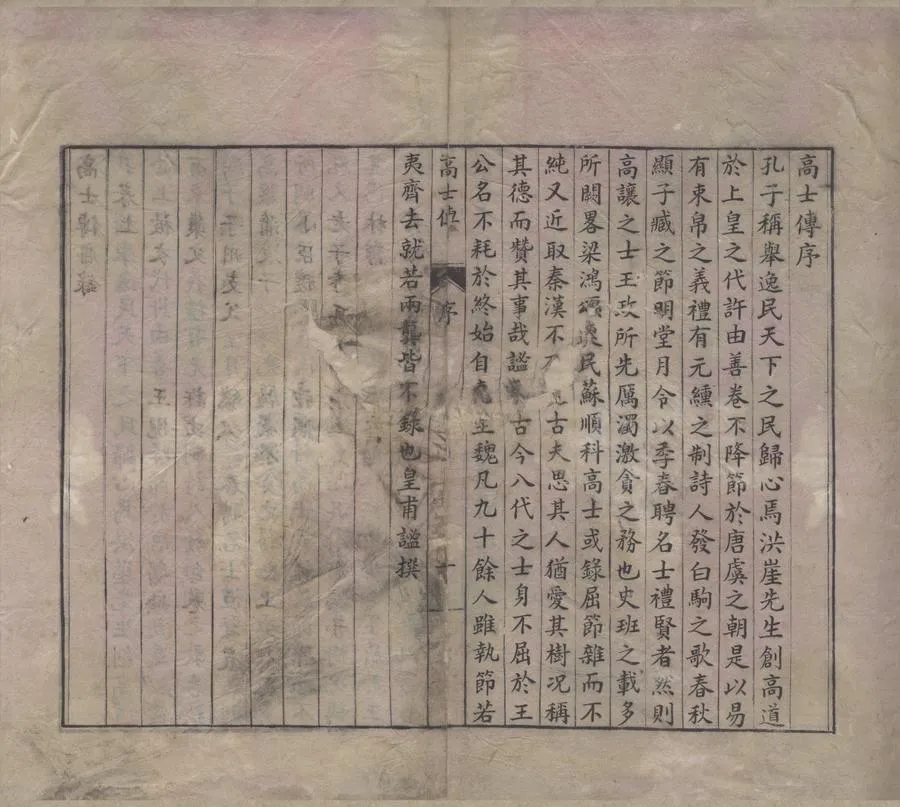 高士傳序
孔子稱舉逸民天下之民歸心焉洪崖先生創高道
於上皇之代許由善卷不降節於唐虞之朝是以易
有束帛之義禮有元纁之制詩人發白駒之歌春秋
顯子臧之節明堂月令以季春聘名士禮賢者然則
高讓之士王政所先厲濁激貪之務也史班之載多
所闕畧梁鴻頌逸民蘇順科高士或錄屈節雜而不
純又近取秦漢不及遠古夫思其人猶愛其樹况稱
其德而贊其事哉謐采古今八代之士身不屈於王
公名不耗於終始自堯至魏凡九十餘人雖執節若
高士傳
序
一
夷齊去就若兩龔皆不錄也皇甫謐撰